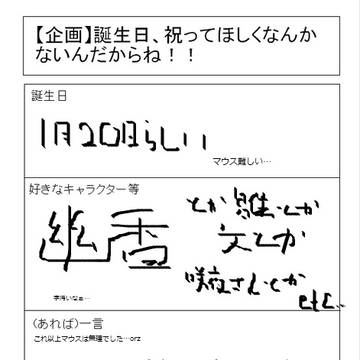 【企画】誕生日、祝ってほしくなんか
ないんだからね！！
誕生日
1月20日らしい
マウス難しい…
好きなキャラクター等
幽香
とか雛とか
文とか
咲夜さんとか
etc...
字汚いなぁ…
(あれば)一言
これ以上マウスは無理でした…orz